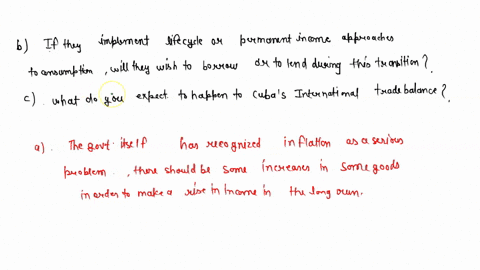 b) If they implement lifecycle or permanent income approaches
to consumption, will they wish to borrow or to lend during this transition?
c). what do you expect to happen to cuba's International trade balance?
a). The govt. itself has recognized inflation as a serious
problem, there should be some increases in some goods
in order to make a rise in income in the long own.